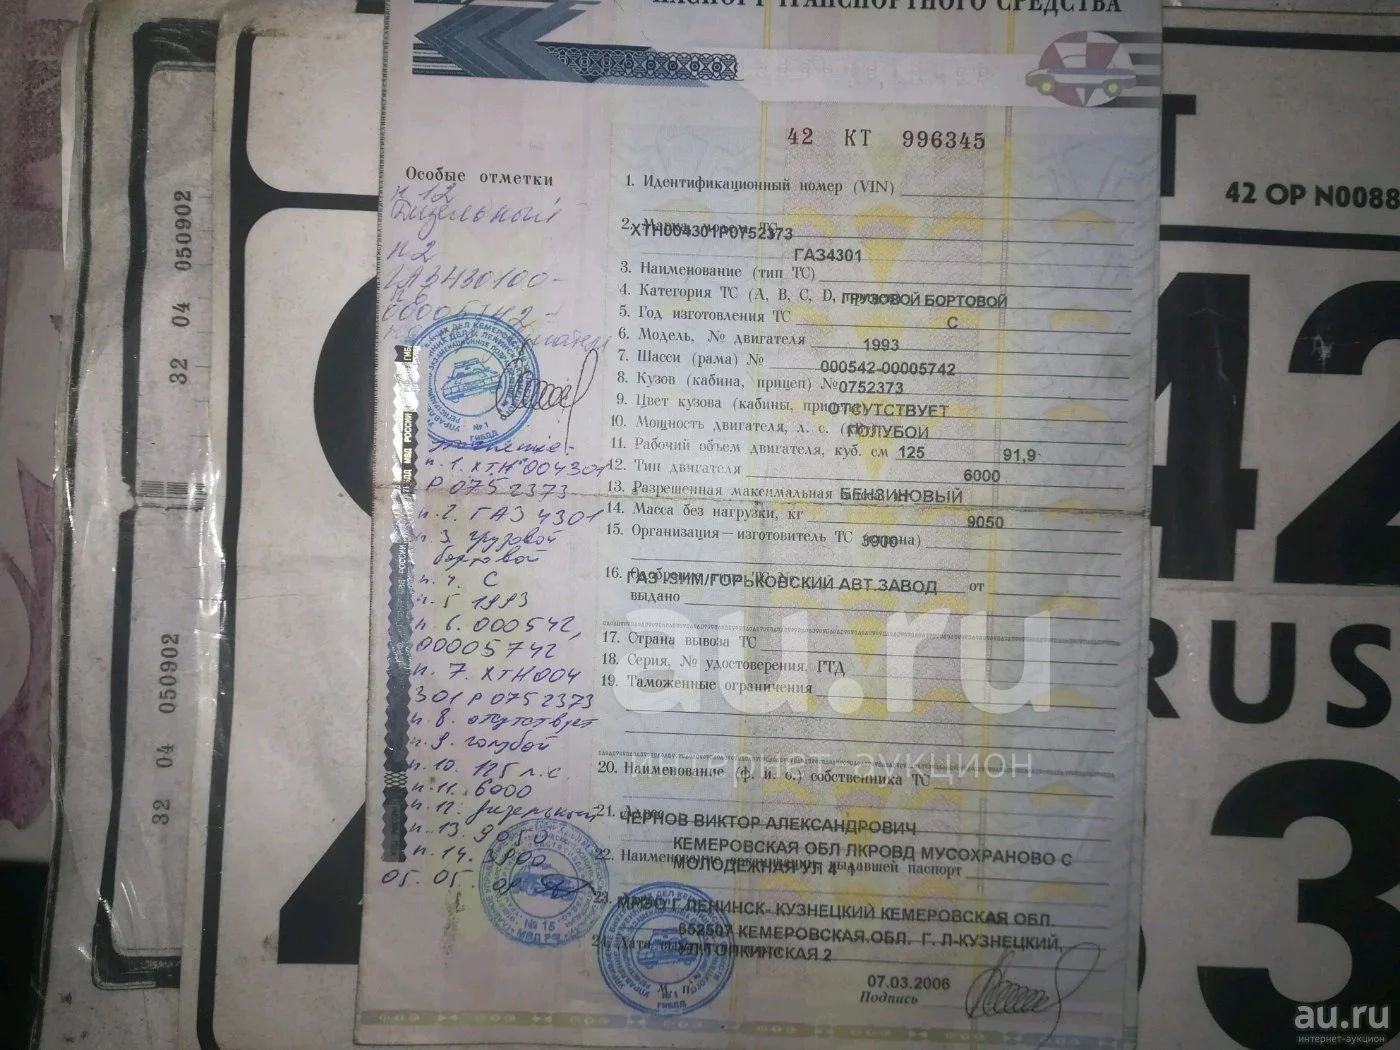 ПАСПОРТ ТРАНСПОРТНОГО СРЕДСТВА
42 КТ 996345
Особые отметки
п 12
Дизельный
п 2
ГАЗ430100-
00005742-
1. Идентификационный номер (VIN)
XTH004301P0752373
2. Марка, модель ТС
ГАЗ4301
3. Наименование (тип ТС)
ГРУЗОВОЙ БОРТОВОЙ
4. Категория ТС (A, B, C, D, прицеп)
С
5. Год изготовления ТС
1993
6. Модель, № двигателя
000542-00005742
7. Шасси (рама) №
0752373
8. Кузов (кабина, прицеп) №
ОТСУТСТВУЕТ
9. Цвет кузова (кабины, прицепа)
ГОЛУБОЙ
10. Мощность двигателя, л. с. (кВт)
125 91,9
11. Рабочий объем двигателя, куб. см
6000
12. Тип двигателя
БЕНЗИНОВЫЙ
13. Разрешенная максимальная масса, кг
9050
14. Масса без нагрузки, кг
3900
15. Организация—изготовитель ТС (страна)
ГАЗ ЗИМ/ГОРЬКОВСКИЙ АВТ.ЗАВОД
16. от
выдано
17. Страна вывоза ТС
18. Серия, № удостоверения, ГТД
19. Таможенные ограничения
20. Наименование (ф. и. о.) собственника ТС
ЧЕРНОВ ВИКТОР АЛЕКСАНДРОВИЧ
21. Адрес
КЕМЕРОВСКАЯ ОБЛ ЛКРОВД МУСОХРАНОВО С
МОЛОДЕЖНАЯ УЛ 4 1
22. Наименование организации, выдавшей паспорт
МРЭО Г.ЛЕНИНСК- КУЗНЕЦКИЙ КЕМЕРОВСКАЯ ОБЛ.
23. Адрес
652507 КЕМЕРОВСКАЯ.ОБЛ. Г. Л-КУЗНЕЦКИЙ,
УЛ.ТОПКИНСКАЯ 2
24. Дата выдачи паспорта
07.03.2006
М. П.
Подпись
п.1. XTH 004301
P0752373
п.2. ГАЗ 4301
п.3. грузовой
бортовой
п.4. С
п.5 1993
п.6. 000542,
00005742
п.7. XTH004
301P0752373
п.8. отсутствует
п.9. голубой
п.10. 125 л.с.
п.11. 6000
п.12. дизельный
п.13. 9050
п.14. 3900
05.05.
№1
ГИБДД
№ 15
МВД РФ
№1
ГИБДД
32 04 050902
32 04 050902
42 ОР N0088
42
RUS
3
au.ru
интернет-аукцион
au.ru
интернет-аукцион